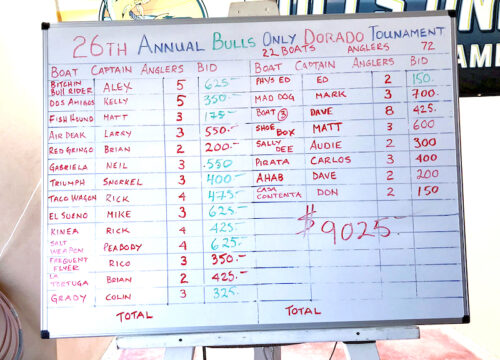 26TH ANNUAL BULLS ONLY DORADO TOURNAMENT
22 BOATS ANGLERS 72
BOAT CAPTAIN ANGLERS BID
BITCHIN BULL RIDER ALEX 5 625-
DOS AMIGOS KELLY 5 350.-
FISH HOUND MATT 3 175-
AIR DEAK LARRY 3 550.-
RED GRINGO BRIAN 2 200.-
GABRIELA NEIL 3 .550
TRIUMPH SNORKEL 3 400-
TACO WAGON RICK 4 475.-
EL SUENO MIKE 3 625.-
KINEA RICK 4 425-
SALT WEAPON PEABODY 4 625-
FREQUENT FLYER RICO 3 350.-
LA TORTUGA BRIAN 2 425.-
GRADY COLIN 3 325
TOTAL
BOAT CAPTAIN ANGLERS BID
PHYS ED ED 2 150.
MAD DOG MARK 3 700.
BOAT 3 DAVE 8 425.
SHOE BOX MATT 3 600
SALLY DEE AUDIE 2 300
PIRATA CARLOS 3 400
AHAB DAVE 2 200
CASA CONTENTA DON 2 150
$9025.-
TOTAL